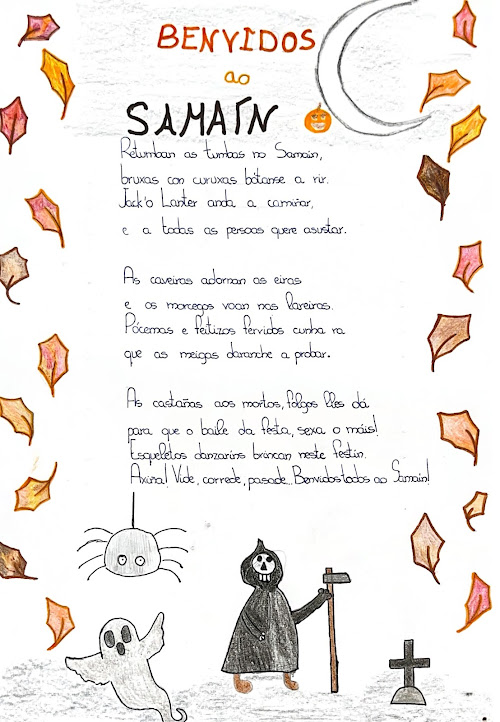 BENVIDOS
ao
SAMAÍN
Retumban as tumbas no Samaín,
bruxas con curuxas bótanse a rir.
Jack'o Lanter anda a camiñar,
e a todas as persoas quere asustar.
As caveiras adornan as eiras
e os morcegos voan nas lareiras.
Pócemas e feitizos fervidos cunha ra
que as meigas daranche a probar.
As castañas aos mortos, folgos lles dá
para que o baile da festa, sexa o máis!
Esqueletos danzaríns brincan neste festín.
Axiña! Vide, correde, pasade... Benvidos todos ao Samaín!